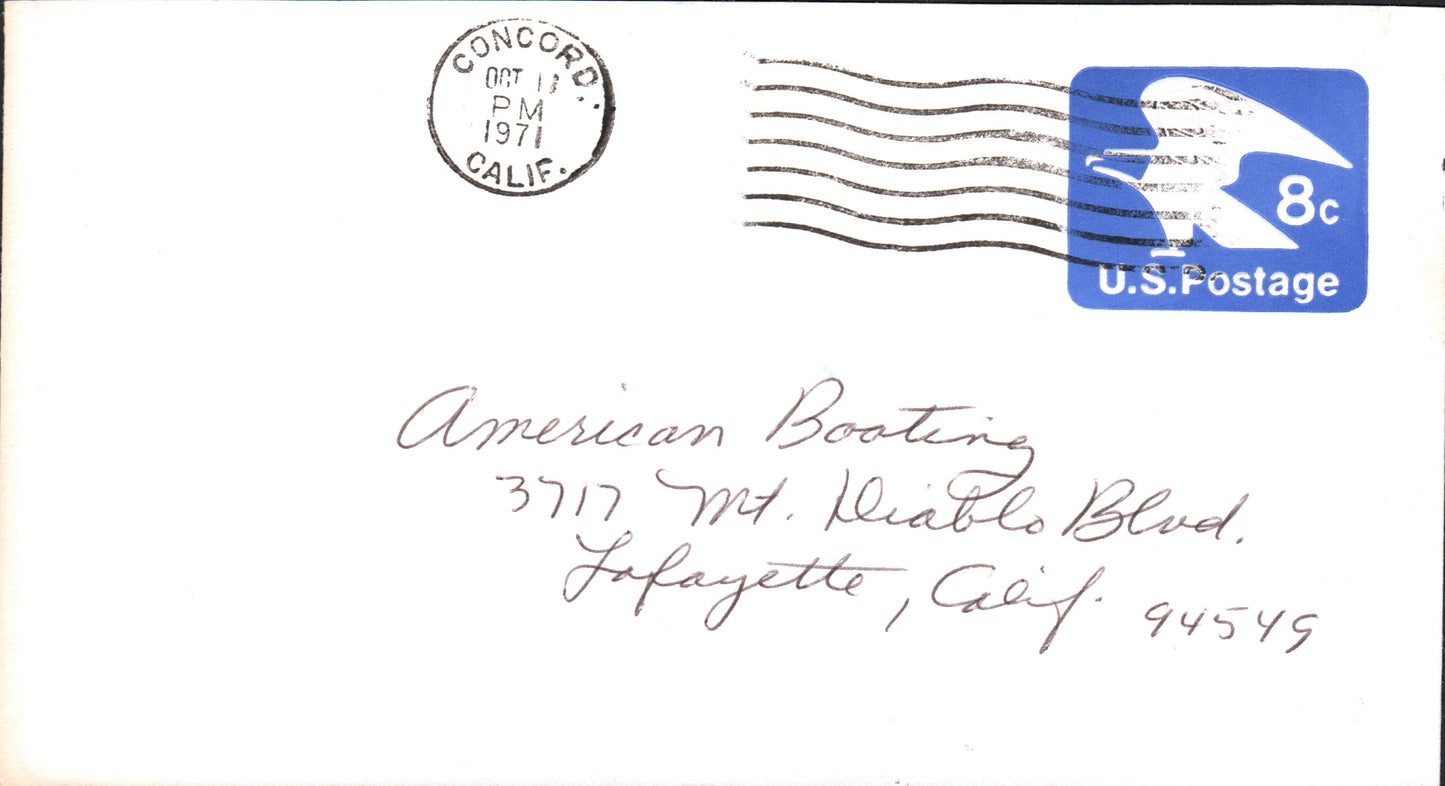 CONCORD.
OCT
PM
1971
CALIF.
8c
U.S. Postage
American Boating
3717 Mt. Diablo Blvd.
Lafayette, Calif. 94549